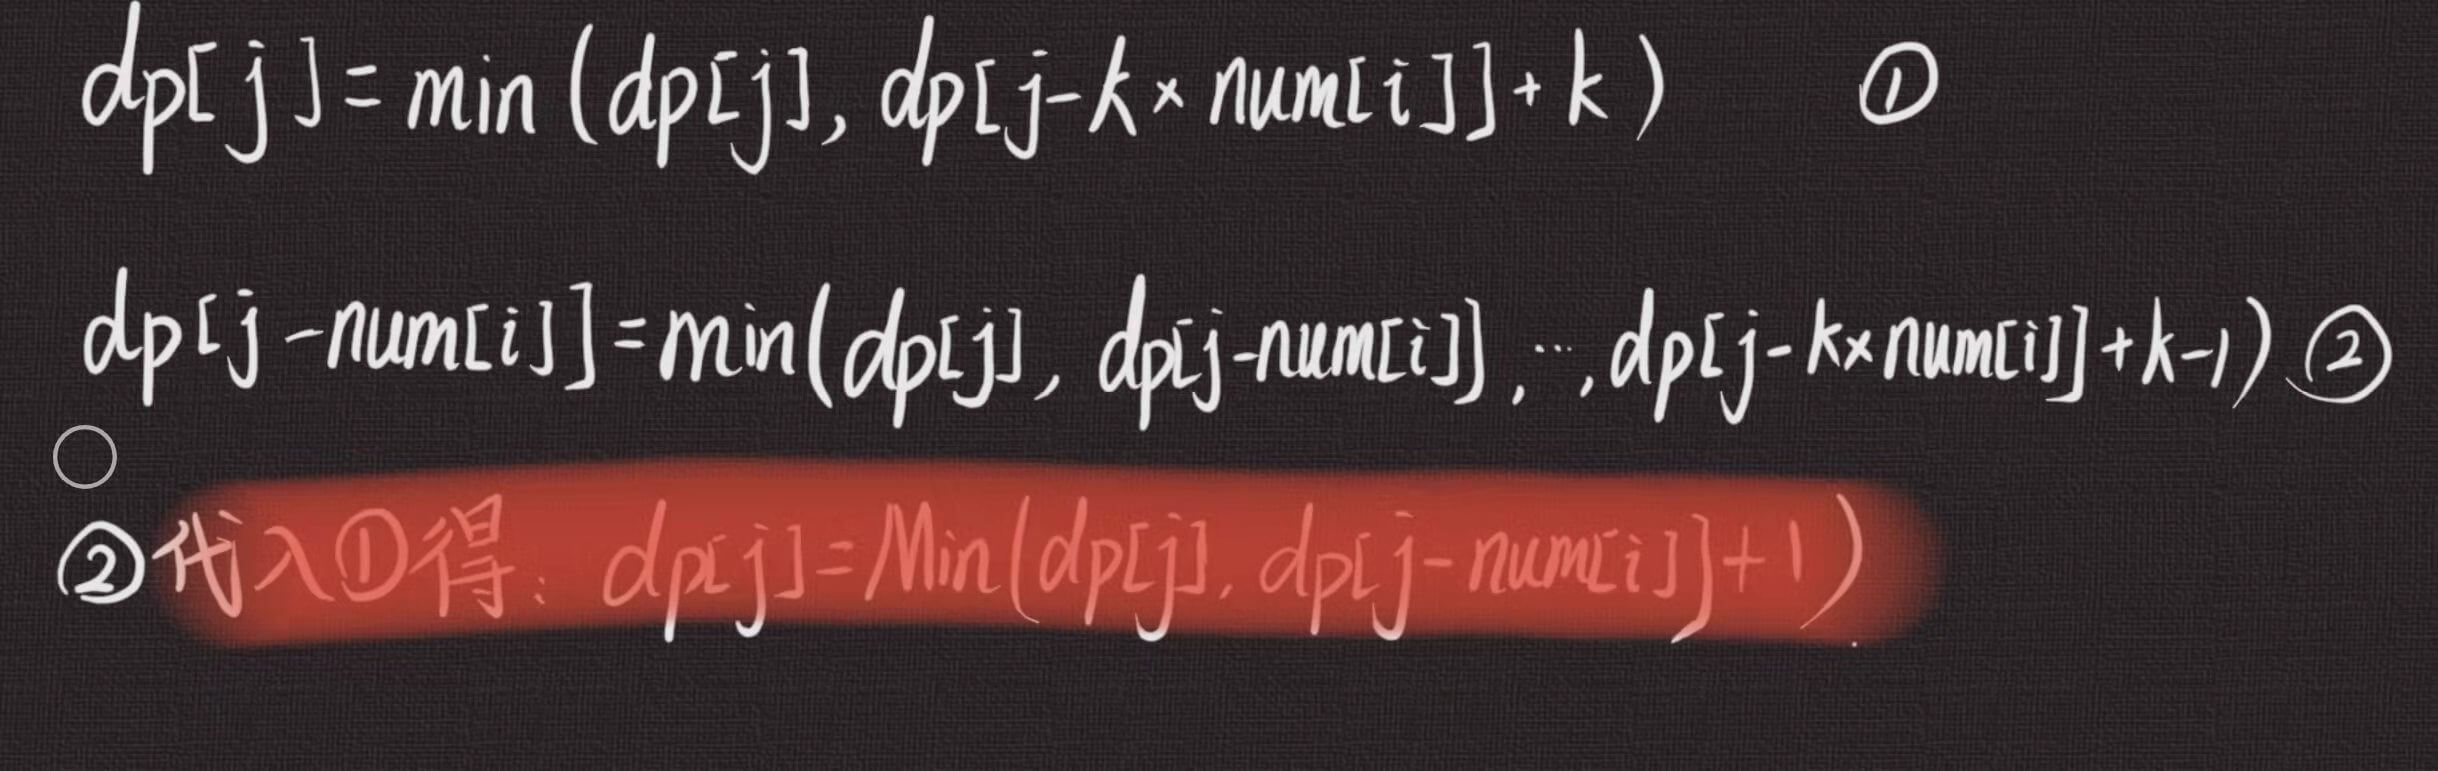 dp[j]=min(dp[j], dp[j-k×num[i]]+k) ①
dp[j-num[i]]=min(dp[j], dp[j-num[i]], ..., dp[j-k×num[i]]+k-1) ②
②代入①得: dp[j]=Min(dp[j], dp[j-num[i]]+1)